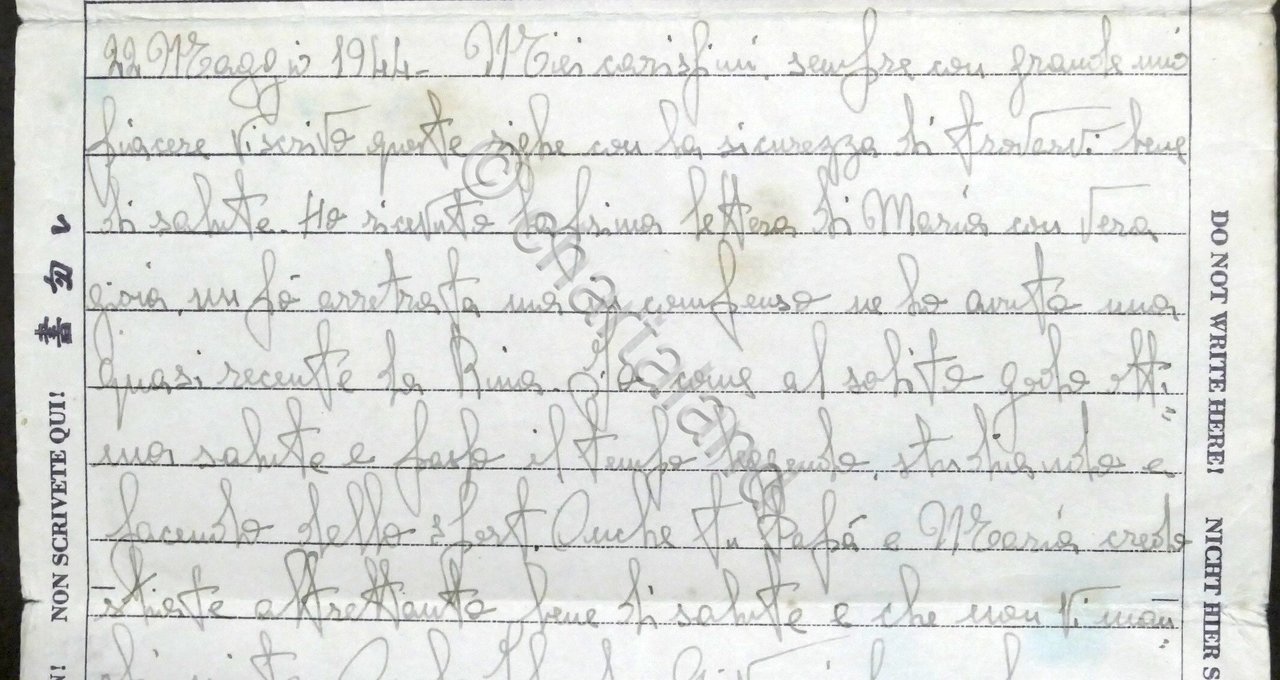 22 Maggio 1944 - Miei carissimi, sempre con grande mio
piacere vi scrivo queste righe con la sicurezza di trovarvi bene
di salute. Ho ricevuto la prima lettera di Maria con vera
gioia, un pò arretrata ma in compenso ne ho avuta una
quasi recente da Rina. Io come al solito godo otti=
ma salute e passo il tempo leggendo, studiando e
facendo dello sport. Anche tu Papá e Maria credo
stiate altrettanto bene di salute e che non vi man=
© chartaland
書勿レ
NON SCRIVETE QUI!
N!
DO NOT WRITE HERE!
NICHT HIER S